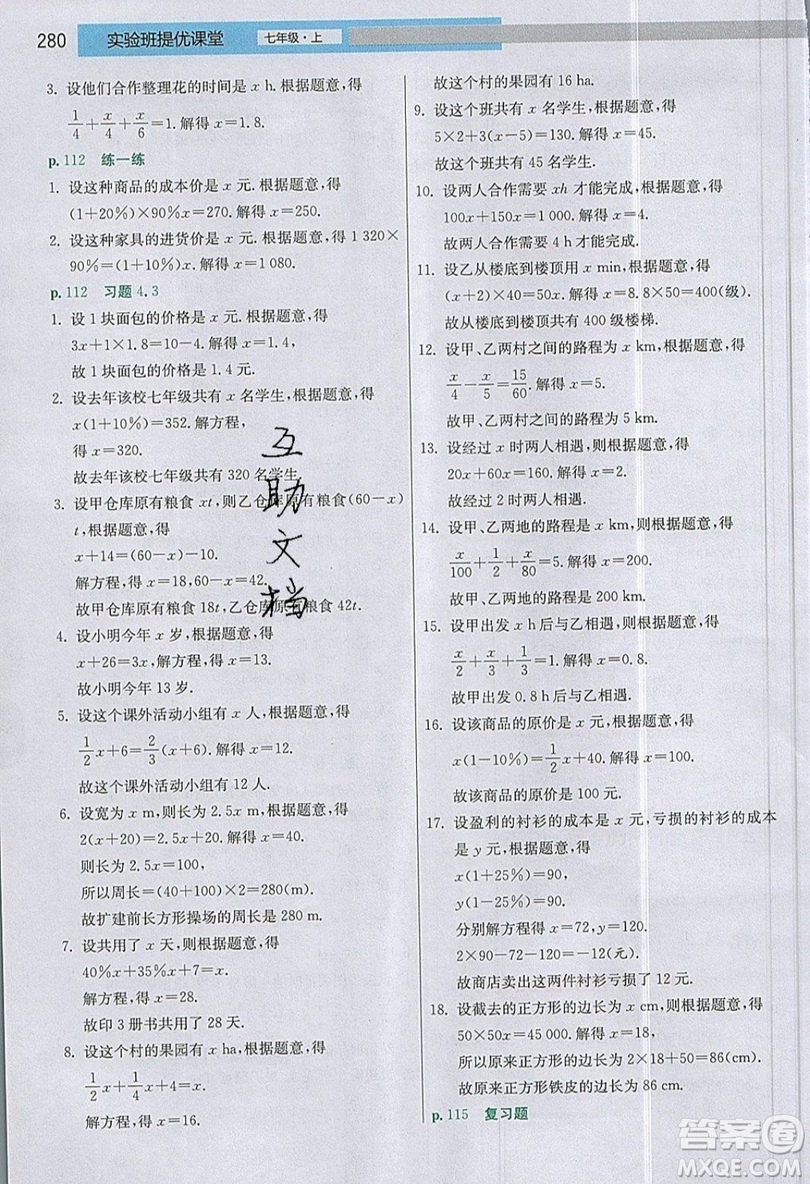 280 实验班提优课堂 七年级·上
3. 设他们合作整理花的时间是 x h. 根据题意, 得
1/4+x/4+x/6=1. 解得 x=1.8.
p.112 练一练
1. 设这种商品的成本价是 x 元. 根据题意, 得
(1+20%)×90%x=270. 解得 x=250.
2. 设这种家具的进货价是 x 元. 根据题意, 得 1 320×
90%=(1+10%)x. 解得 x=1 080.
p.112 习题 4.3
1. 设 1 块面包的价格是 x 元. 根据题意, 得
3x+1×1.8=10-4. 解得 x=1.4,
故 1 块面包的价格是 1.4 元.
2. 设去年该校七年级共有 x 名学生, 根据题意, 得
x(1+10%)=352. 解方程,
得 x=320.
故去年该校七年级共有 320 名学生.
3. 设甲仓库原有粮食 xt, 则乙仓库原有粮食(60-x)
t, 根据题意, 得
x+14=(60-x)-10.
解方程, 得 x=18, 60-x=42.
故甲仓库原有粮食 18t, 乙仓库原有粮食 42t.
4. 设小明今年 x 岁, 根据题意, 得
x+26=3x, 解方程, 得 x=13.
故小明今年 13 岁.
5. 设这个课外活动小组有 x 人, 根据题意, 得
1/2x+6=2/3(x+6). 解得 x=12.
故这个课外活动小组有 12 人.
6. 设宽为 x m, 则长为 2.5x m, 根据题意, 得
2(x+20)=2.5x+20. 解得 x=40.
则长为 2.5x=100,
所以周长=(40+100)×2=280(m).
故扩建前长方形操场的周长是 280 m.
7. 设共用了 x 天, 根据题意, 得
40%x+35%x+7=x.
解方程, 得 x=28.
故印 3 册书共用了 28 天.
8. 设这个村的果园有 x ha, 根据题意, 得
1/2x+1/4x+4=x.
解方程, 得 x=16.
故这个村的果园有 16 ha.
9. 设这个班共有 x 名学生, 根据题意, 得
5×2+3(x-5)=130. 解得 x=45.
故这个班共有 45 名学生.
10. 设两人合作需要 xh 才能完成, 根据题意, 得
100x+150x=1 000. 解得 x=4.
故两人合作需要 4 h 才能完成.
11. 设乙从楼底到楼顶用 x min, 根据题意, 得
(x+2)×40=50x. 解得 x=8. 8×50=400(级).
故从楼底到楼顶共有 400 级楼梯.
12. 设甲、乙两村之间的路程为 x km, 根据题意, 得
x/4-x/5=15/60. 解得 x=5.
故甲、乙两村之间的路程为 5 km.
13. 设经过 x 时两人相遇, 根据题意, 得
20x+60x=160. 解得 x=2.
故经过 2 时两人相遇.
14. 设甲、乙两地的路程为 x km, 则根据题意, 得
x/100+1/2+x/80=5. 解得 x=200.
故甲、乙两地的路程为 200 km.
15. 设甲出发 x h 后与乙相遇, 则根据题意, 得
x/2+x/3+1/3=1. 解得 x=0.8.
故甲出发 0.8 h 后与乙相遇.
16. 设该商品的原价是 x 元, 根据题意, 得
x(1-10%)=1/2x+40. 解得 x=100.
故该商品的原价是 100 元.
17. 设盈利的衬衫的成本是 x 元, 亏损的衬衫的成本
是 y 元, 根据题意, 得
x(1+25%)=90,
y(1-25%)=90.
分别解方程, 得 x=72, y=120.
2×90-72-120=-12(元).
故商店卖出这两件衬衫亏损了 12 元.
18. 设截去的正方形的边长为 x cm, 则根据题意, 得
50×50x=45 000. 解得 x=18,
所以原来正方形的边长为 18+18+50=86(cm).
故原来正方形铁皮的边长为 86 cm.
p.115 复习题
互助文档
答案圈
MXQE.COM